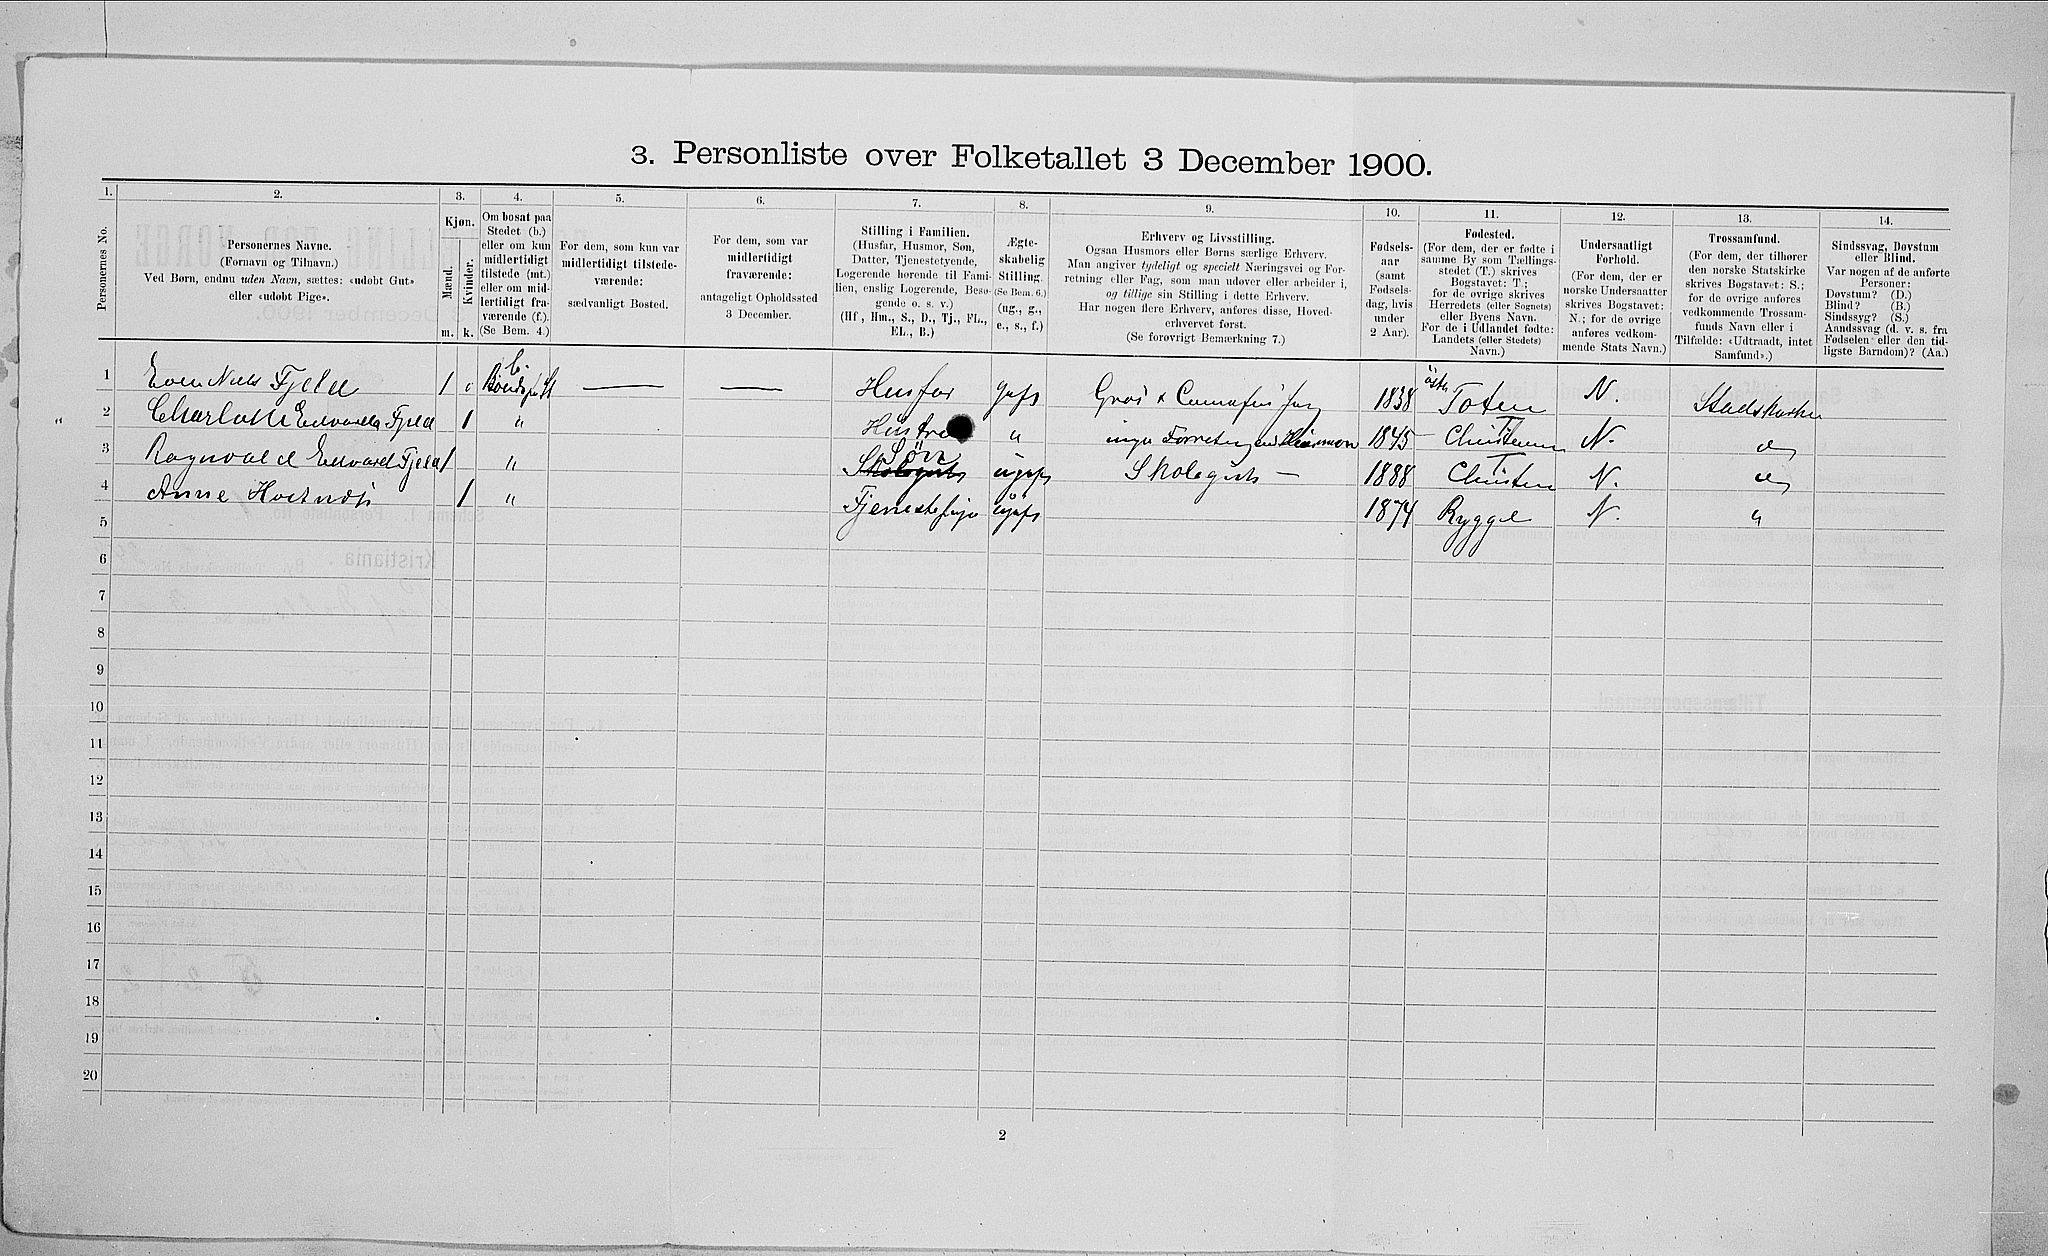 3. Personliste over Folketallet 3 December 1900.
1. 2. 3. 4. 5. 6. 7. 8. 9. 10. 11. 12. 13. 14.
Personernes No.
Personernes Navne.
(Fornavn og Tilnavn.)
Ved Børn, endnu uden Navn, sættes: «udøbt Gut»
eller «udøbt Pige».
Kjøn.
Mænd.
Kvinder.
m. k.
Om bosat paa
Stedet (b.)
eller om kun
midlertidigt
tilstede (mt.)
eller om mid-
lertidigt fra-
værende (f.).
(Se Bem. 4.)
For dem, som kun var
midlertidigt tilstede-
værende:
sædvanligt Bosted.
For dem, som var
midlertidigt
fraværende:
antageligt Opholdssted
3 December.
Stilling i Familien.
(Husfar, Husmor, Søn,
Datter, Tjenestetyende,
Logerende hørende til Fami-
lien, enslig Logerende, Besø-
gende o. s. v.)
(Hf, Hm., S., D., Tj., FL.,
EL., B.)
Ægte-
skabelig
Stilling.
(Se Bem. 6.)
(ug., g.,
e., s., f.)
Erhverv og Livsstilling.
Ogsaa Husmors eller Børns særlige Erhverv.
Man angiver tydeligt og specielt Næringsvei og For-
retning eller Fag, som man udøver eller arbeider i,
og tillige sin Stilling i dette Erhverv.
Har nogen flere Erhverv, anføres disse, Hoved-
erhvervet først.
(Se forøvrigt Bemærkning 7.)
Fødsels-
aar
(samt
Fødsels-
dag, hvis
under
2 Aar).
Fødested.
(For dem, der er fødte i
samme By som Tællings-
stedet (T.) skrives
Bogstavet: T;
for de øvrige skrives
Herredets (eller Sognets)
eller Byens Navn.
For de i Udlandet fødte:
Landets (eller Stedets)
Navn.)
Undersaatligt
Forhold.
(For dem, der er
norske Undersaatter
skrives Bogstavet:
N.; for de øvrige
anføres vedkom-
mende Stats Navn.)
Trossamfund.
(For dem, der tilhører
den norske Statskirke
skrives Bogstavet: S.;
for de øvrige anføres
vedkommende Trossam-
funds Navn eller i
Tilfælde: «Udtraadt, intet
Samfund».)
Sindssvag, Døvstum
eller Blind.
Var nogen af de anførte
Personer:
Døvstum? (D.)
Blind? (B.)
Sindssyg? (S.)
Aandssvag (d. v. s. fra
Fødselen eller den tid-
ligste Barndom)? (Aa.)
1 Even Niels Fjeld 1 b. — — Husfar 1838 Toten N.
2 Charlotte Fjeld 1 " Hustru " 1845 N.
3 Ragnvald Edvard Fjeld 1 " Søn Skolegut — 1888 N.
4 Anne 1 " 1874 Rygge N. "
5
6
7
8
9
10
11
12
13
14
15
16
17
18
19
20
2